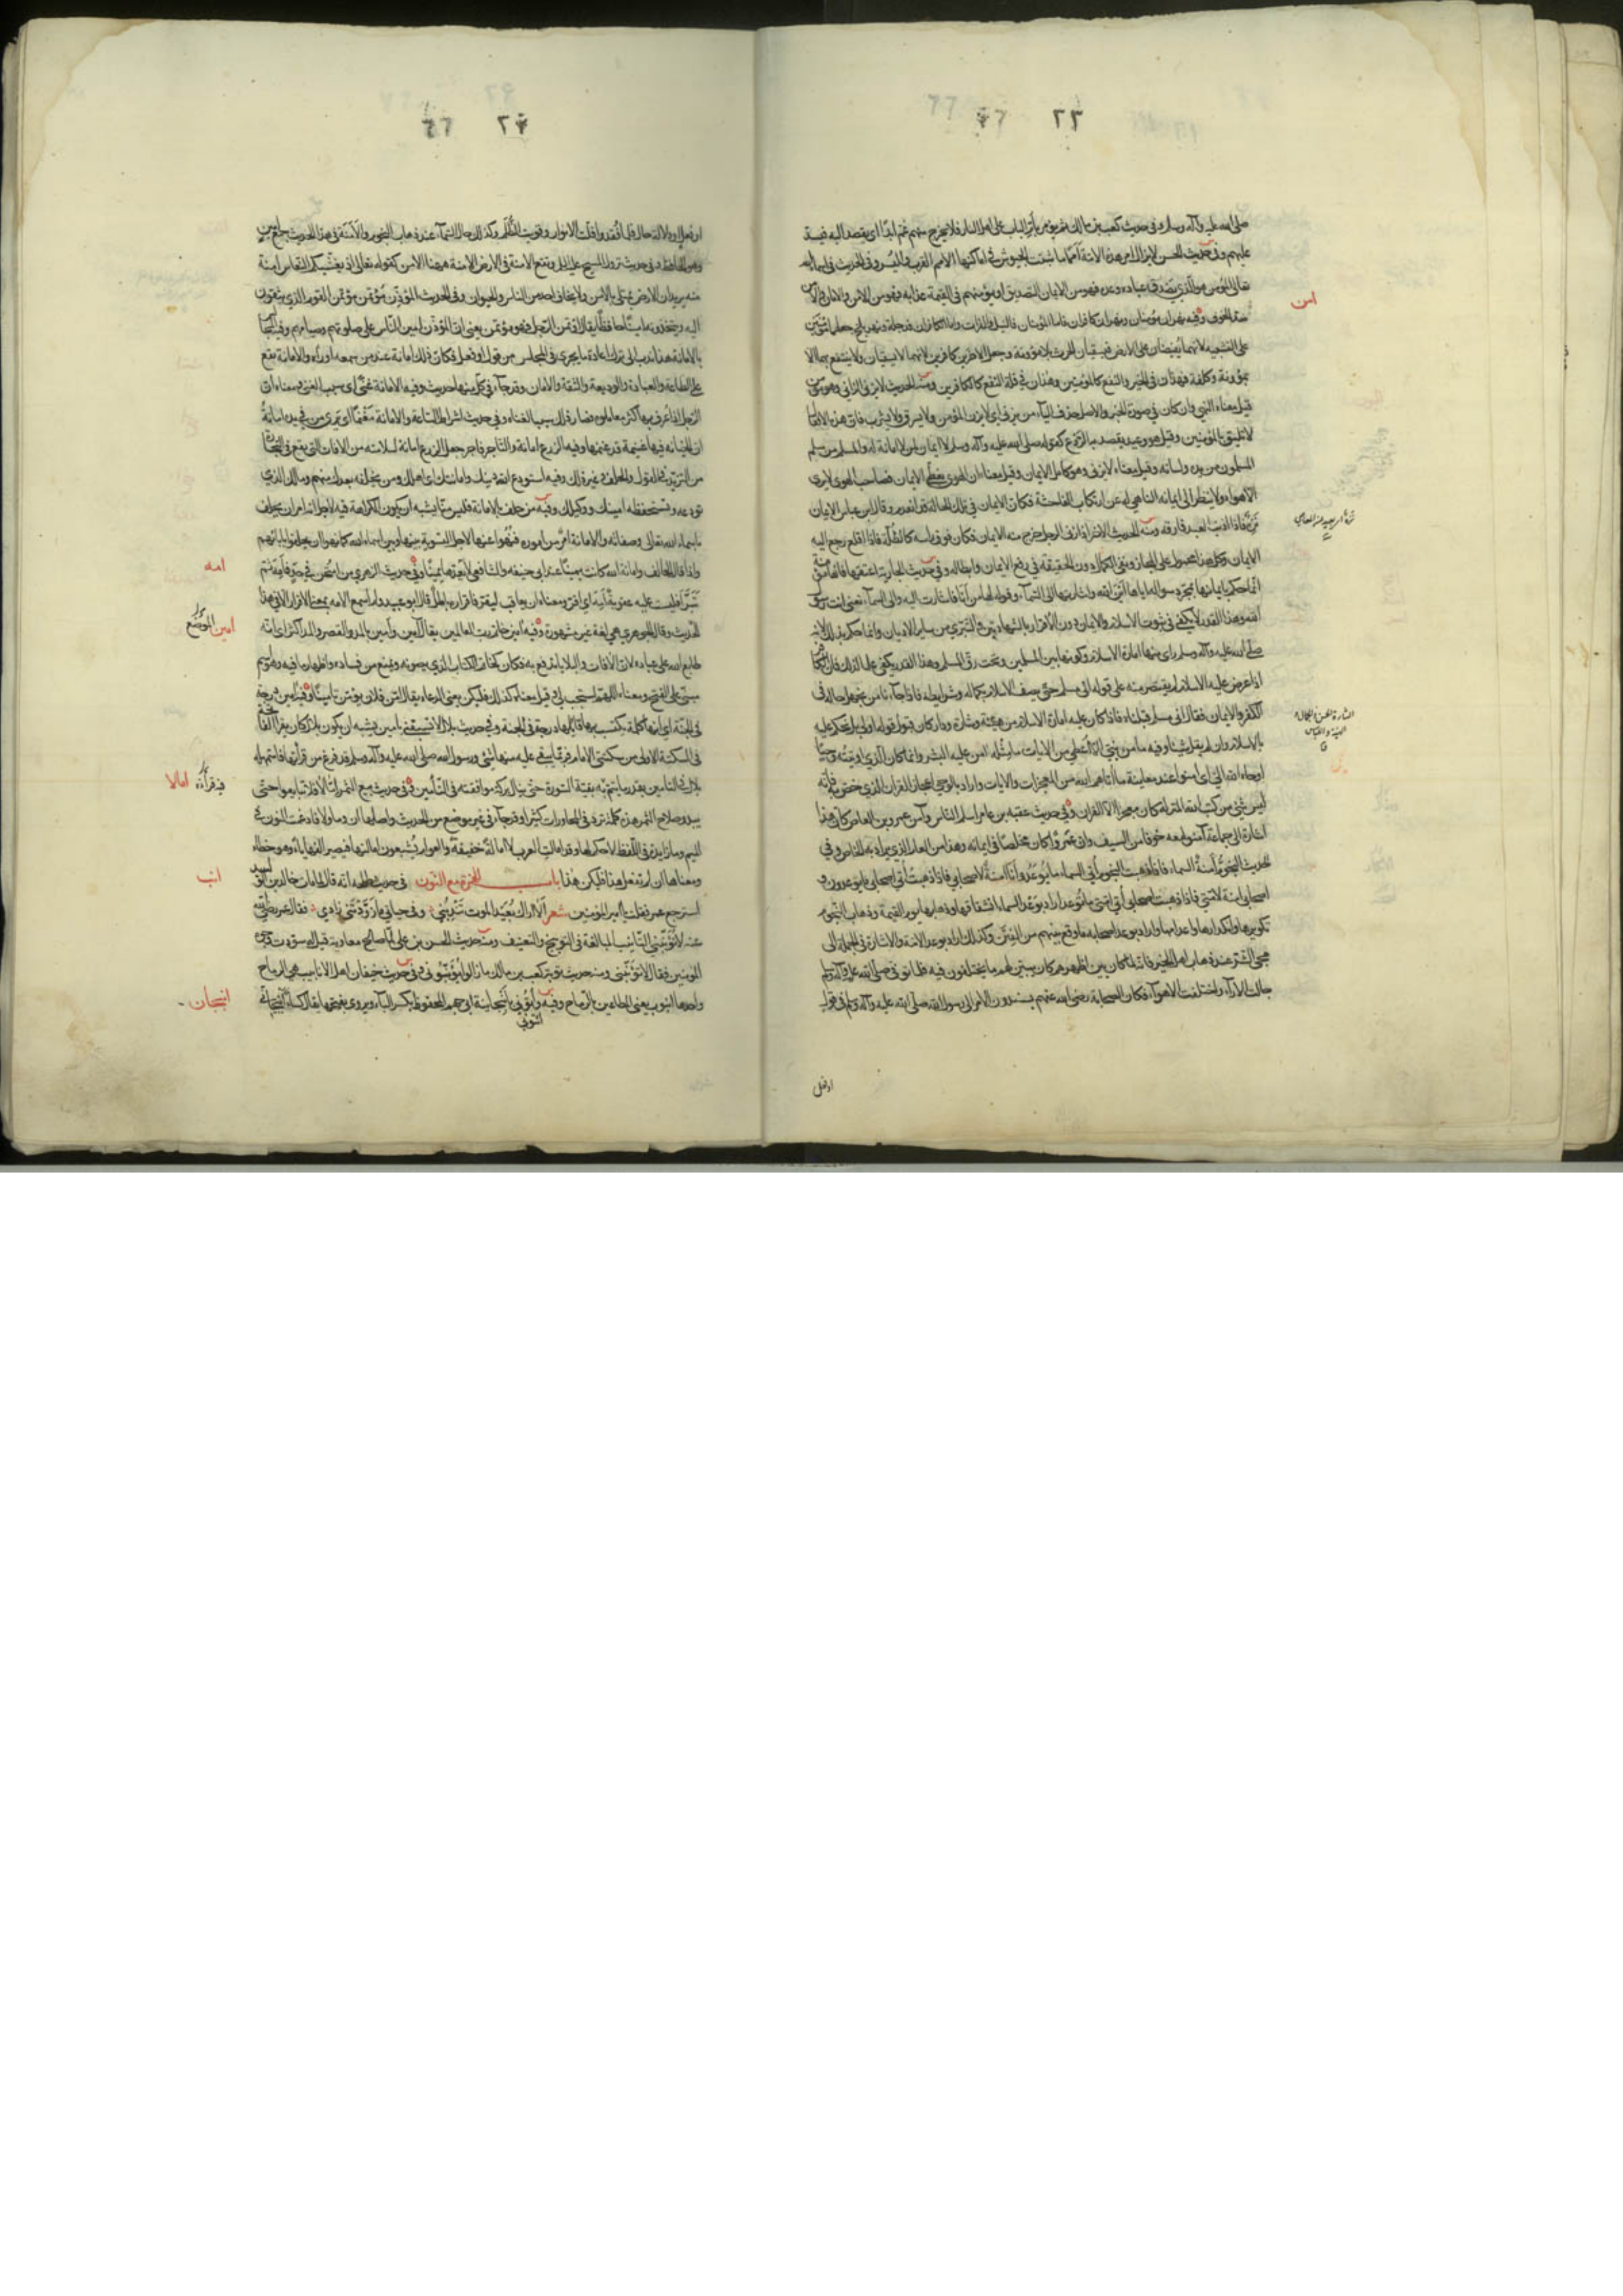 ٢٣
صلى الله عليه وآله وسلم وفي حديث كعب بن مالك ثم يؤمر بأمّ الباب على اهل النار فلا يخرج منهم غم ابدًا اي يقصد اليه فيسد
عليهم وفي حديث الحسن لا يزال امر هذه الامة أممًا ما ثبتت الجيوش في اماكنها الأمم القرب واليسر وفي الحديث في اسماء الله
تعالى المؤمن هو الذي يصدق عباده وعده فهو من الايمان التصديق او يؤمنهم في القيمة عذابه فهو من الامن والامان
ضد الخوف وفيه نهران مؤمنان ونهران كافران فاما المؤمنان فالنيل والفرات واما الكافران فدجلة ونهر بلخ جعلهما مؤمنين
على التشبيه لانهما يفيضان على الارض فيسقيان الحرث بلا مؤونة وجعل الاخرين كافرين لانهما لا يسقيان ولا ينتفع بهما الا
بمؤونة وكلفة فهذان في الخير والنفع كالمؤمنين وهذان في قلة النفع كالكافرين ومنه الحديث لا يزني الزاني وهو مؤمن
قيل معناه النهي وان كان في صورة الخبر والاصل حذف الياء من يزني اي لا يزن المؤمن ولا يسرق ولا يشرب فان هذه الافعال
لا تليق بالمؤمنين وقيل هو وعيد يقصد به الردع كقوله صلى الله عليه وآله وسلم لا ايمان لمن لا امانة له والمسلم من سلم
المسلمون من يده ولسانه وقيل معناه لا يزني وهو كامل الايمان وقيل معناه ان الهوى يغطي الايمان فصاحب الهوى لا يرى
الا هواه ولا ينظر الى ايمانه الناهي له عن ارتكاب الفاحشة فكان الايمان في تلك الحالة قد انعدم وقال ابن عباس الايمان
نزه فاذا اذنب العبد فارقه ومنه الحديث الاخر اذا زنى الرجل خرج منه الايمان فكان فوق راسه كالظلة فاذا اقلع رجع اليه
الايمان وكل هذا محمول على المجاز ونفي الكمال دون الحقيقة في رفع الايمان وابطاله وفي حديث الجارية اعتقها فانها مؤمنة
انما حكم بايمانها بمجرد سواله اياها اين الله واشارتها الى السماء وقوله لها من أنا فاشارت اليه والى السماء تعني انت رسول
الله وهذا القدر لا يكفي في ثبوت الاسلام والايمان دون الاقرار بالشهادتين والتبري من سائر الاديان وانما حكم بذلك لانه
صلى الله عليه وآله وسلم راى منها امارة الاسلام وكونها بين المسلمين وتحت رق المسلم وهذا القدر يكفي علما لذلك فان الكافر
اذا عرض عليه الاسلام لم يقتصر منه على قوله اني مسلم حتى يصف الاسلام بكماله وشرايطه فاذا جاءنا من نجهل حاله في
الكفر والايمان فقال اني مسلم قبلناه فاذا كان عليه امارة الاسلام من هيئة وشارة ودار كان قبول قوله اولى بل نحكم عليه
بالاسلام وان لم يقل شيئا وفيه ما من نبي الا اعطي من الايات ما مثله امن عليه البشر وانما كان الذي اوتيته وحيًا
اوحاه الله الي اي امنوا عند معاينة ما آتاهم الله من المعجزات والايات واراد بالوحي اعجاز القران الذي خص به فانه
ليس شئ من كتب الله المنزلة كان معجزًا الا القران وفي حديث عقبة بن عامر اسلم الناس وآمن عمرو بن العاص كأن هذا
اشارة الى جماعة آمنوا معه خوفا من السيف وان عمرًوا كان مخلصًا في ايمانه وهذا من العام الذي يراد به الخاص وفي
الحديث النجوم أمنة السماء فاذا ذهبت النجوم أتى السماء ما توعد وأنا امنة لاصحابي فاذا ذهبت أتى اصحابي ما يوعدون و
اصحابي امنة لامتي فاذا ذهب اصحابي أتى امتي ما توعد اراد بوعد السماء انشقاقها وذهابها يوم القيمة وذهاب النجوم
تكويرها وانكدارها واعدامها واراد بوعد اصحابه ما وقع بينهم من الفتن وكذلك اراد بوعد الامة والاشارة في الجملة الى
مجئ الشر عند ذهاب اهل الخير فانه لما كان بين اظهرهم كان يبين لهم ما يختلفون فيه فلما توفي صلى الله عليه وآله وسلم
جالت الآراء واختلفت الاهواء فكان الصحابة رضي الله عنهم يسندون الامر الى رسول الله صلى الله عليه وآله وسلم في قول
او فعل
امن
٢٤
او فعل او دلالة حال فلما فُقد قلت الانوار وقويت الظلم وكذلك حال السماء عند ذهاب النجوم والأمنة في هذا الحديث جمع امين
وهو الحافظ وفي حديث نزول المسيح عليه السلم وتقع الامنة في الارض الامنة ههنا الامن كقوله تعالى اذ يغشيكم النعاس امنة
منه يريد ان الارض تمتلئ بالامن ولا يخاف احد من الناس والحيوان وفي الحديث المؤذن مؤتمن مؤتمن القوم الذي يثقون
اليه ويتخذونه امينًا حافظًا يقال اؤتمن الرجل فهو مؤتمن يعني ان المؤذن امين الناس على صلوتهم وصيامهم وفيه المجالس
بالامانة هذا ندب الى ترك اعادة ما يجري في المجلس من قول او فعل فكأن ذلك امانة عند من سمعه او رآه والامانة تقع
على الطاعة والعبادة والوديعة والثقة والامان وقد جاء في كل منها حديث وفيه الامانة غنى اي سبب الغنى ومعناه ان
الرجل اذا عرف بها اكثر معاملوه فصار ذلك سببا لغناه وفي حديث اشراط الساعة والامانة مغنمًا اي يرى من في يده امانة
ان الخيانة فيها غنيمة قد غنمها وفيه الزرع امانة والتاجر فاجر جعل الزرع امانة لسلامته من الافات التي تقع في التجارة
من التزيد في القول والحلف وغير ذلك وفيه استودع الله دينك وامانتك اي اهلك ومن تخلفه بعدك منهم ومالك الذي
تودعه وتستحفظه امينك ووكيلك وفيه من حلف بالامانة فليس منا يشبه ان يكون الكراهة فيه لاجل انه امر ان يحلف
باسماء الله تعالى وصفاته والامانة امر من اموره فنهوا عنها لاجل التسوية بينها وبين اسماء الله كما نهوا ان يحلفوا بابائهم
واذا قال الحالف وامانة الله كانت يمينًا عند ابي حنيفه والشافعي لا يعدها يمينًا وفي حديث الزهري من امتحن في حد فأمه ثم
تبرأ فليست عليه عقوبة أمه اي اقر ومعناه ان يعاقب ليقر فاقراره باطل قال ابو عبيد ولم اسمع الامه بمعنى الاقرار الا في هذا
الحديث وقال الجوهري هي لغة غير مشهورة وفيه آمين خاتم رب العالمين يقال آمين وأمين بالمد والقصر والمد اكثر اي انه
طابع الله على عباده لان الافات والبلايا تدفع به فكان كخاتم الكتاب الذي يصونه ويمنع من فساده واظهار ما فيه وهو اسم
مبني على الفتح ومعناه اللهم استجب لي وقيل معناه كذلك فليكن يعني الدعاء يقال امن فلان يؤمن تامينًا وفيه آمين درجة
في الجنة اي انها كلمة يكتسب بها قائلها درجة في الجنة وفي حديث بلال لا تسبقني بامين يشبه ان يكون بلال كان يقرأ الفاتحة
في السكتة الاولى من سكتتي الامام فربما يبقى عليه منها شئ ورسول الله صلى الله عليه وآله وسلم قد فرغ من قرأتها فاستمهله
بلال في التامين بقدر ما يتم به بقية السورة حتى ينال بركة موافقته في التأمين وفي حديث بيع الثمر إمّا لا فلا تبايعوا حتى
يبدو صلاح الثمر هذه كلمة ترد في المحاورات كثيرًا وقد جاء في غير موضع من الحديث واصلها ان وما ولا فادغمت النون في
الميم وما زايدة في اللفظ لا حكم لها وقد امالت العرب لا امالة خفيفة والعوام يشبعون امالتها فيصير الفها ياء وهو خطاء
ومعناها ان لم تفعل هذا فليكن هذا باب الهمزة مع النون في حديث طلحه انه قال لما مات خالد بن الوليد
استرجع عمر فقلت يا امير المؤمنين شعر ألا اراك بُعَيد الموت تندبني وفي حياتي ما زودتني زادي فقال عمر رضي الله
عنه لا تؤنبني التانيب المبالغة في التوبيخ والتعنيف ومنه حديث الحسن بن علي لما صالح معاوية قيل له سوّدت وجوه
المؤمنين فقال لا تؤنبني ومنه حديث توبة كعب بن مالك ما زالوا يؤنبوني وفي حديث خيفان اهل الانابيب هي الرماح
واحدها انبوب يعني المطاعين بالرماح وفيه وأتوني بأنبجانية ابي جهم المحفوظ بكسر الباء ويروى بفتحها يقال كساء أنبجاني
امه
امين
امالا
انب
انبجان